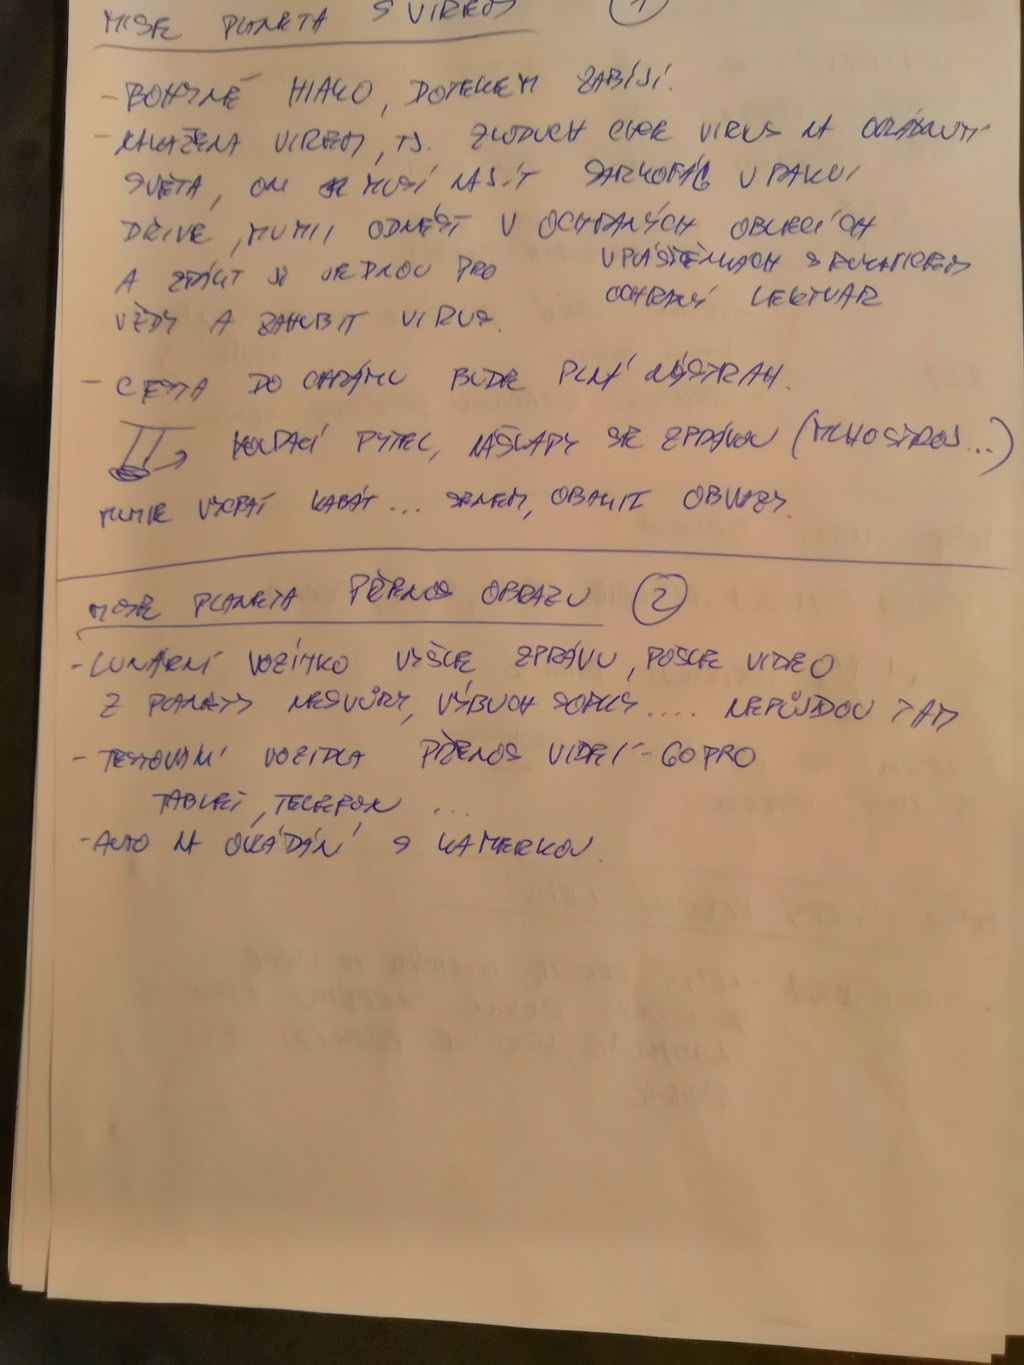 MISE PLANETA S VIREM 1
- BOHYNĚ HIAKO, DOTEKEM ZABÍJÍ.
- NAKAŽENA VIREM, TJ. ZLODUCH CHCE VIRUS NA OVLÁDNUTÍ
SVĚTA, ON MUSÍ NAJÍT SARKOFÁG V
DŘÍVE, MUMII ODNÉST V OCHRANÝCH OBLECÍCH
V PLÁŠTĚNKÁCH S RUKAVICEMI
A VRÁTIT SE JEDNOU PRO
OCHRANÝ LEKTVAR
VŽDY A ZAHUBIT VIRUS.
- CESTA DO CHRÁMU BUDE PLNÁ NÁSTRAH.
HOUPACÍ PYTEL, NÁŠLAPY SE ZPRÁVOU (MLHOSTROJ...)
MUMIE VYCPAT KABÁT... SENEM, OBALIT OBVAZY.
MISE PLANETA PŘENOS OBRAZU 2
- LUNÁRNÍ VOZÍTKO VYŠLE ZPRÁVU, POŠLE VIDEO
Z PLANETY NESTVŮRY, VÝBUCH SOPKY .... NEPŮJDOU TAM
- TESTOVÁNÍ VOZIDLA PŘENOS VIDEÍ - GOPRO
TABLET, TELEFON ...
- AUTO NA OVLÁDÁNÍ S KAMERKOU.